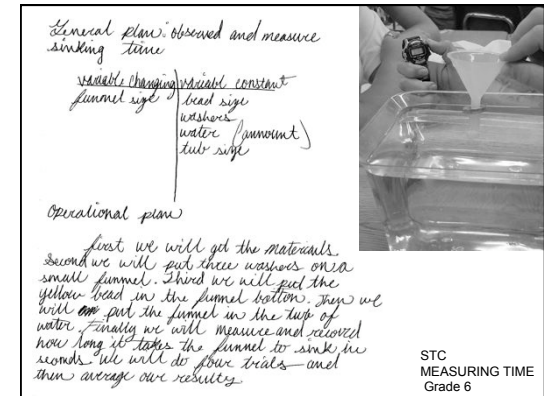 General plan: observed and measure
sinking time
variable changing variable constant
funnel size bead size
washers
water (amount)
tub size
Operational plan
first we will get the materials.
Second we will put three washers on a
small funnel. Third we will put the
yellow bead in the funnel botton. Then we
will put the funnel in the tub of
water. Finally we will measure and record
how long it takes the funnel to sink in
seconds. We will do four trials and
then average our results
STC
MEASURING TIME
Grade 6